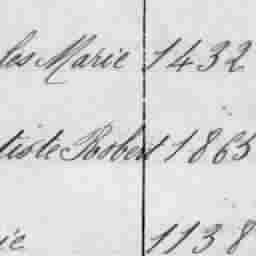 les Marie 1432
tiste Robert 1865
ie 1138